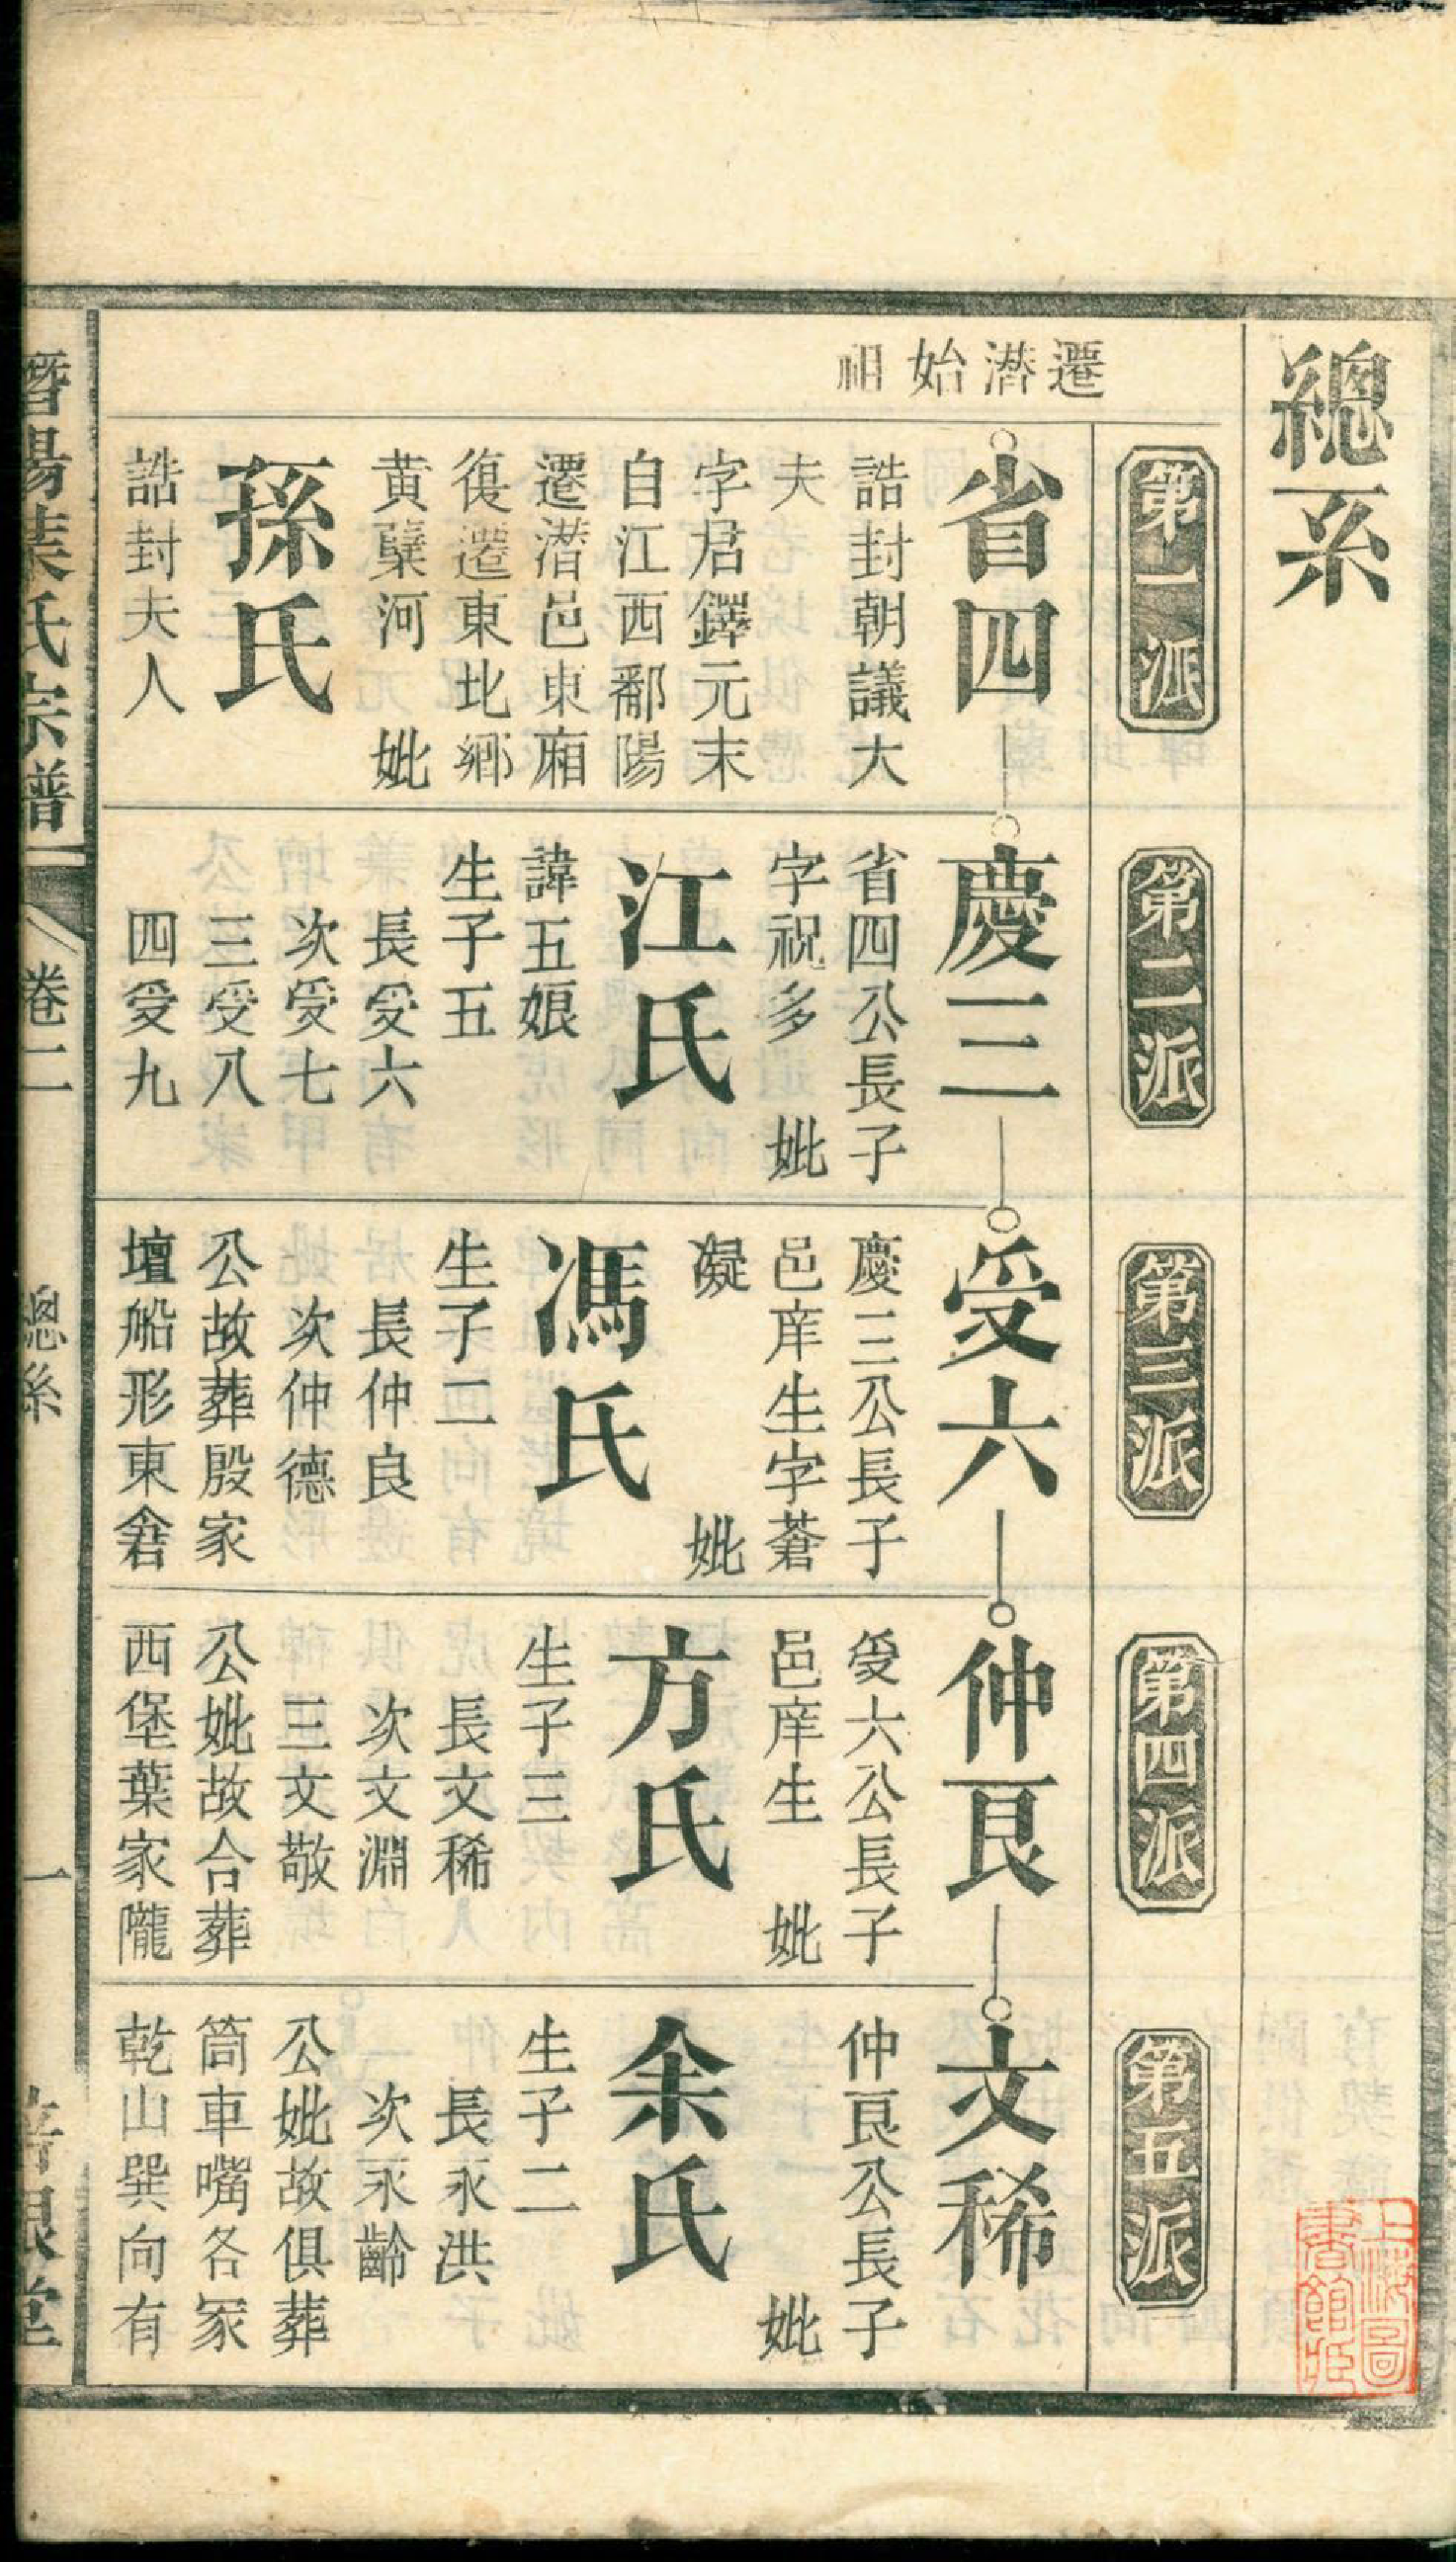 總系
第一派
第二派
第三派
第四派
第五派
遷潜始祖
省四
誥封朝議大
夫
字君鐸元末
自江西鄱陽
遷潜邑東廂
復遷東北鄉
黄蘗河 妣
孫氏
誥封夫人
慶三
省四公長子
字祝多 妣
江氏
諱五娘
生子五
長受六
次受七
三受八
四受九
受六
慶三公長子
邑庠生字蒼
凝 妣
馮氏
生子二
長仲良
次仲德
公故葬殷家
壇船形東畲
仲良
受六公長子
邑庠生 妣
方氏
生子三
長文稀
次文淵
三文敬
公妣故合葬
西堡葉家隴
文稀
仲良公長子
妣
余氏
生子二
長永洪
次永齡
公妣故俱葬
筒車嘴各冢
乾山巽向有
葉氏宗譜 卷二 總系 一
上海圖書館藏